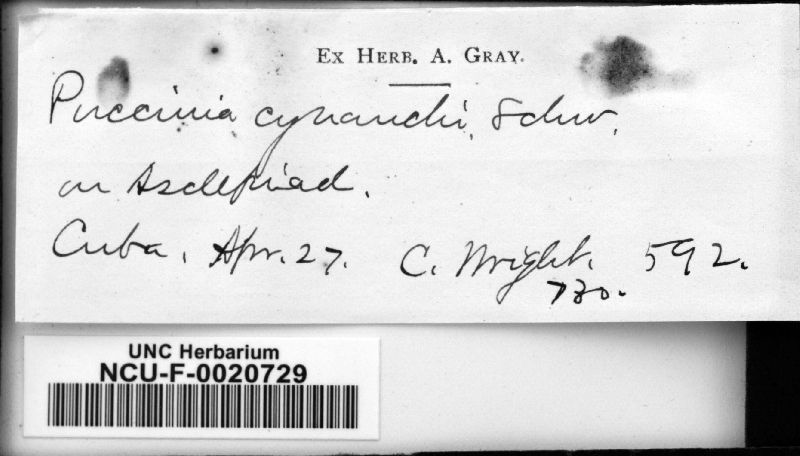 Ex Herb. A. Gray.
Puccinia cynanchi, Schw.
on Asclepiad.
Cuba, Apr. 27. C. Wright. 592.
730.
UNC Herbarium
NCU-F-0020729